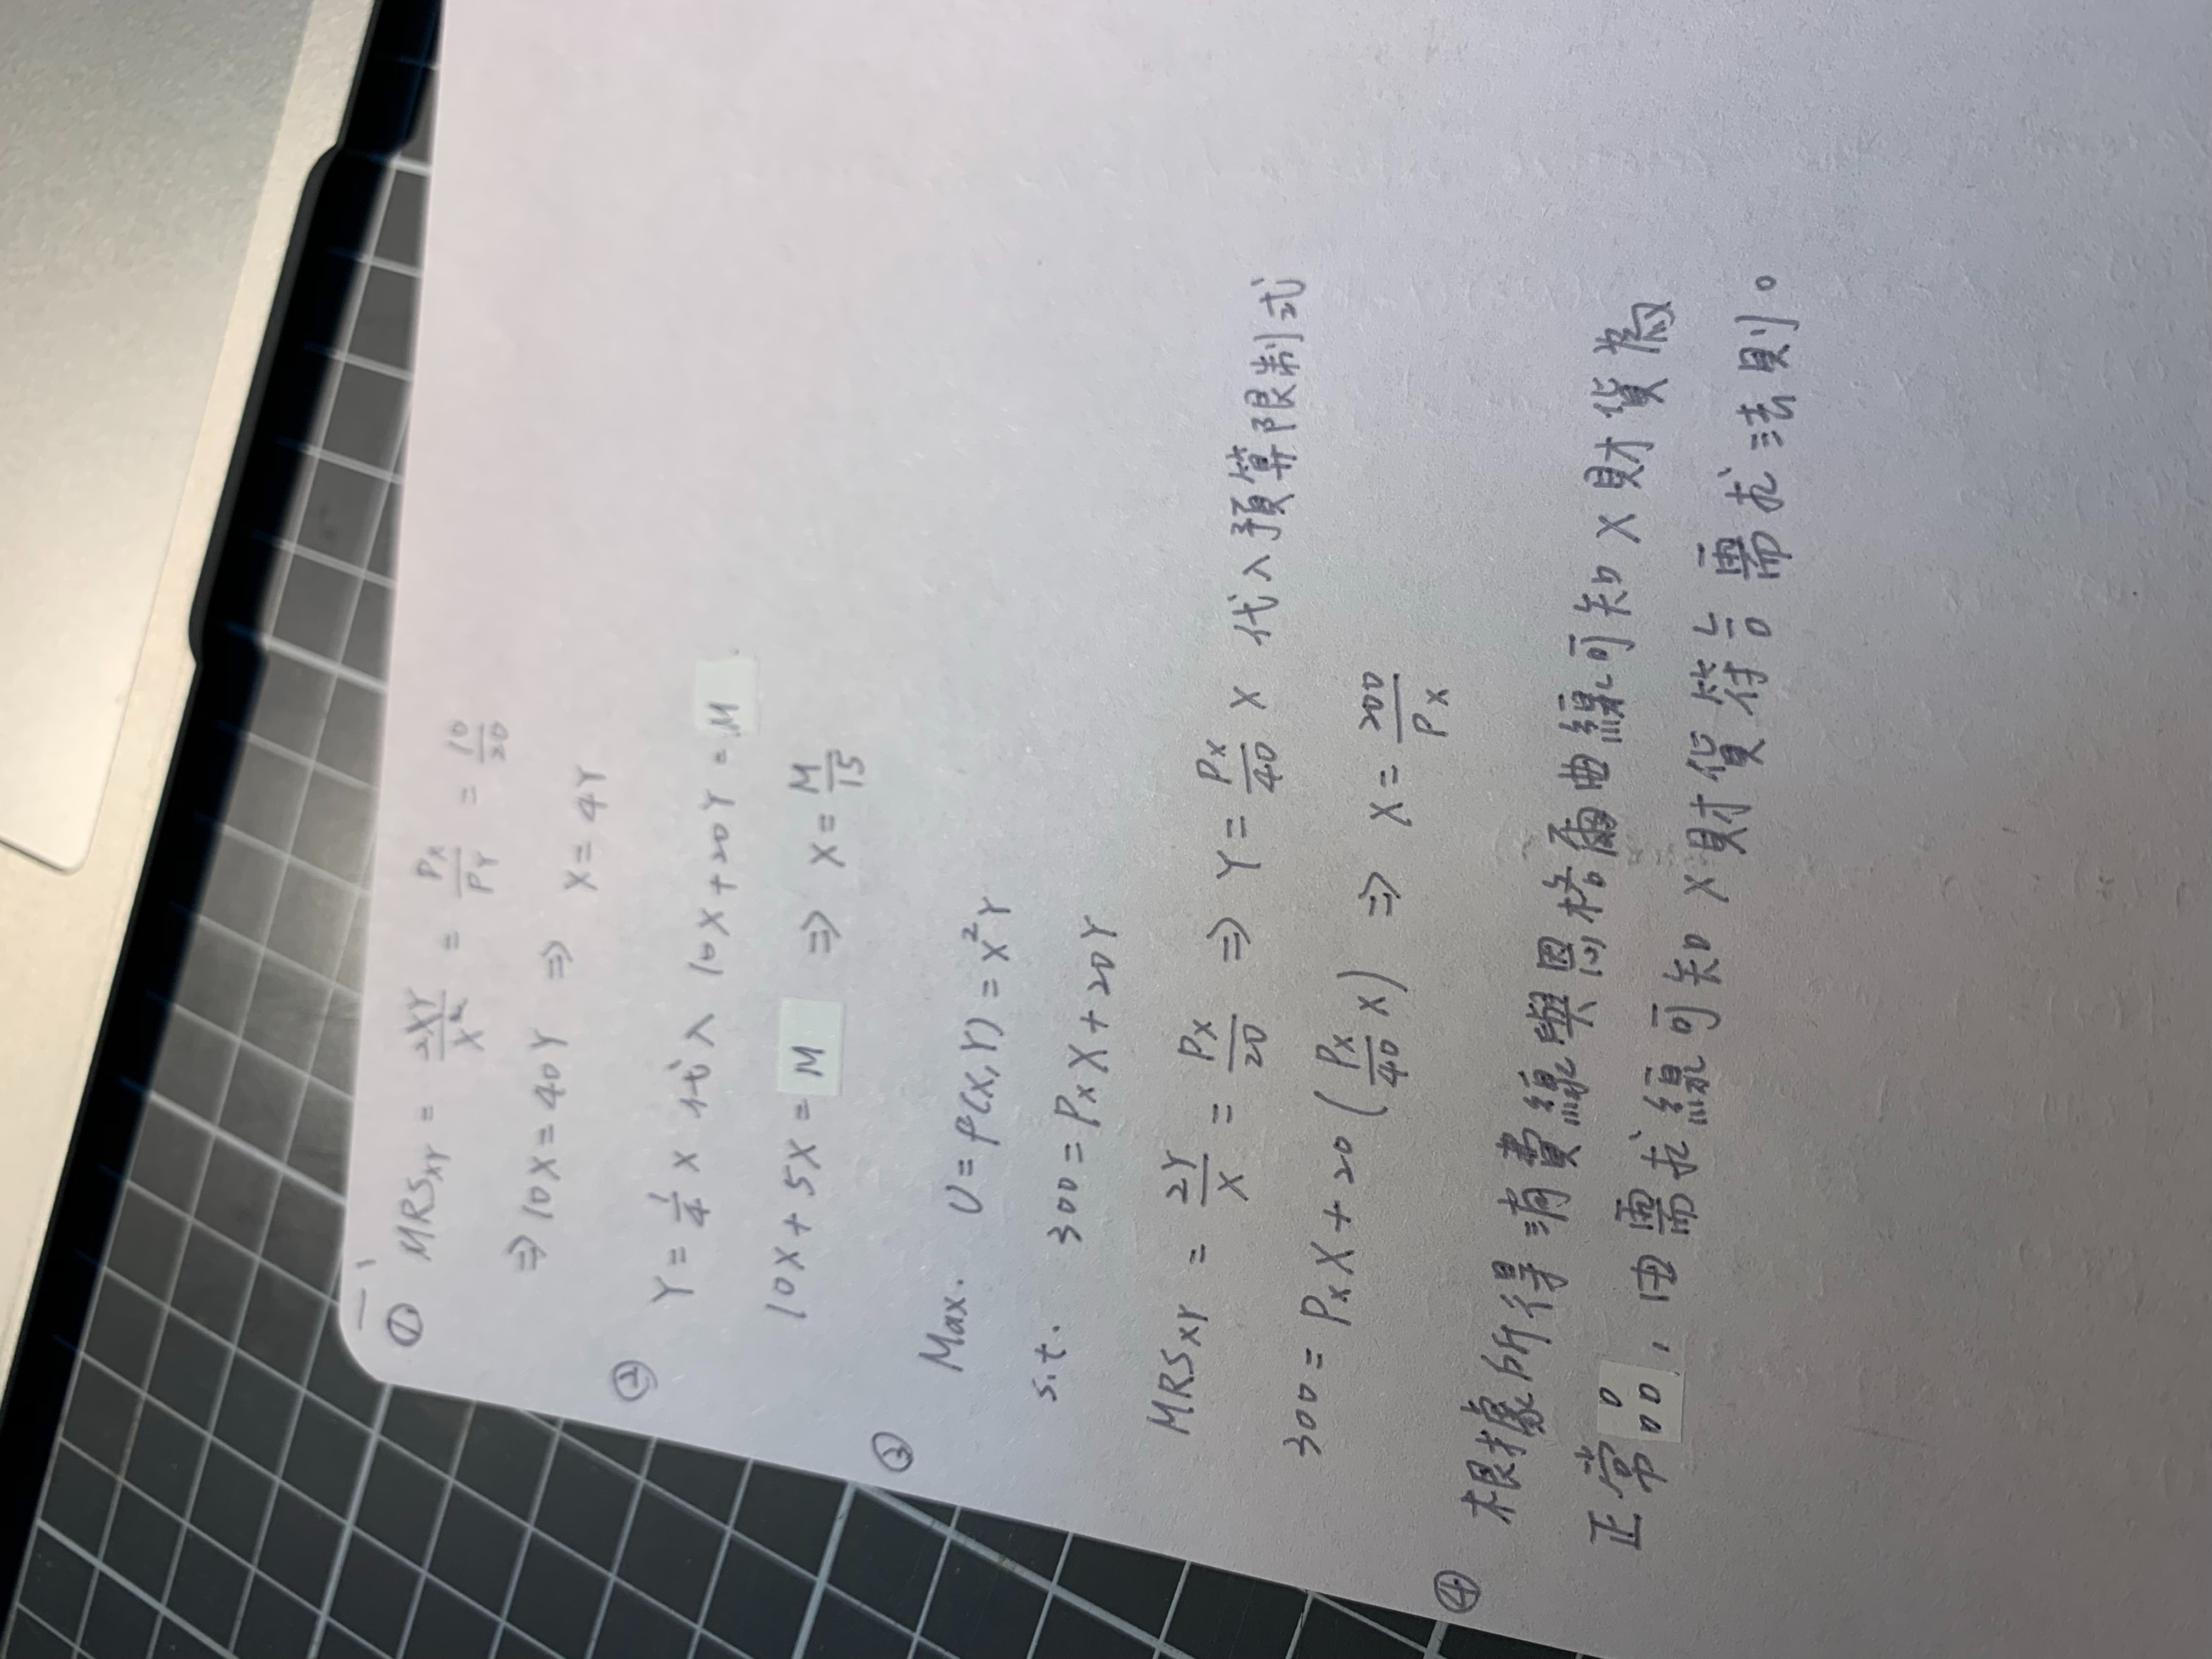 一、
① MRSxy = 2XY/X² = Px/PY = 10/20
⇒ 10X = 40Y ⇒ X = 4Y
② Y = 1/4 X 代入 10X + 20Y = M.
10X + 5X = M ⇒ X = M/15
③ Max. U = f(X,Y) = X²Y
s.t. 300 = PxX + 20Y
MRSxy = 2Y/X = Px/20 ⇒ Y = Px/40 X 代入預算限制式
300 = PxX + 20 (Px/40 X) ⇒ X = 200/Px
④ 根據所得消費線與恩格爾曲線可知X財貨為
正常品，由需求線可知X財貨符合需求法則。